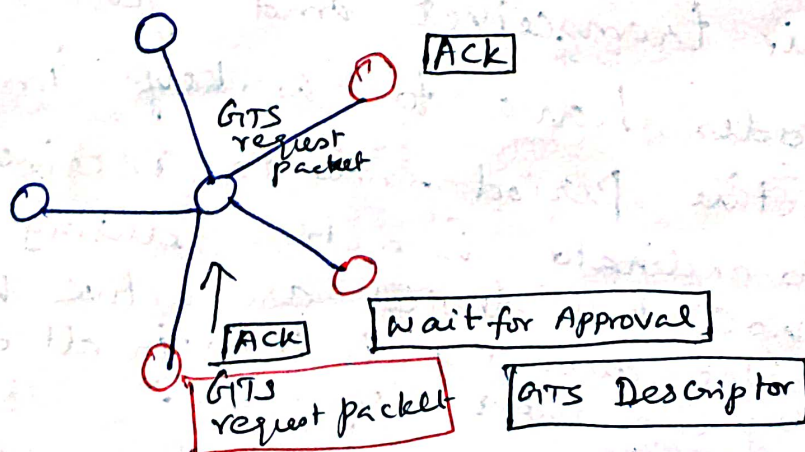 ACK
GTS
request
packet
wait for Approval
ACK
GTS
request packet
GTS Descriptor